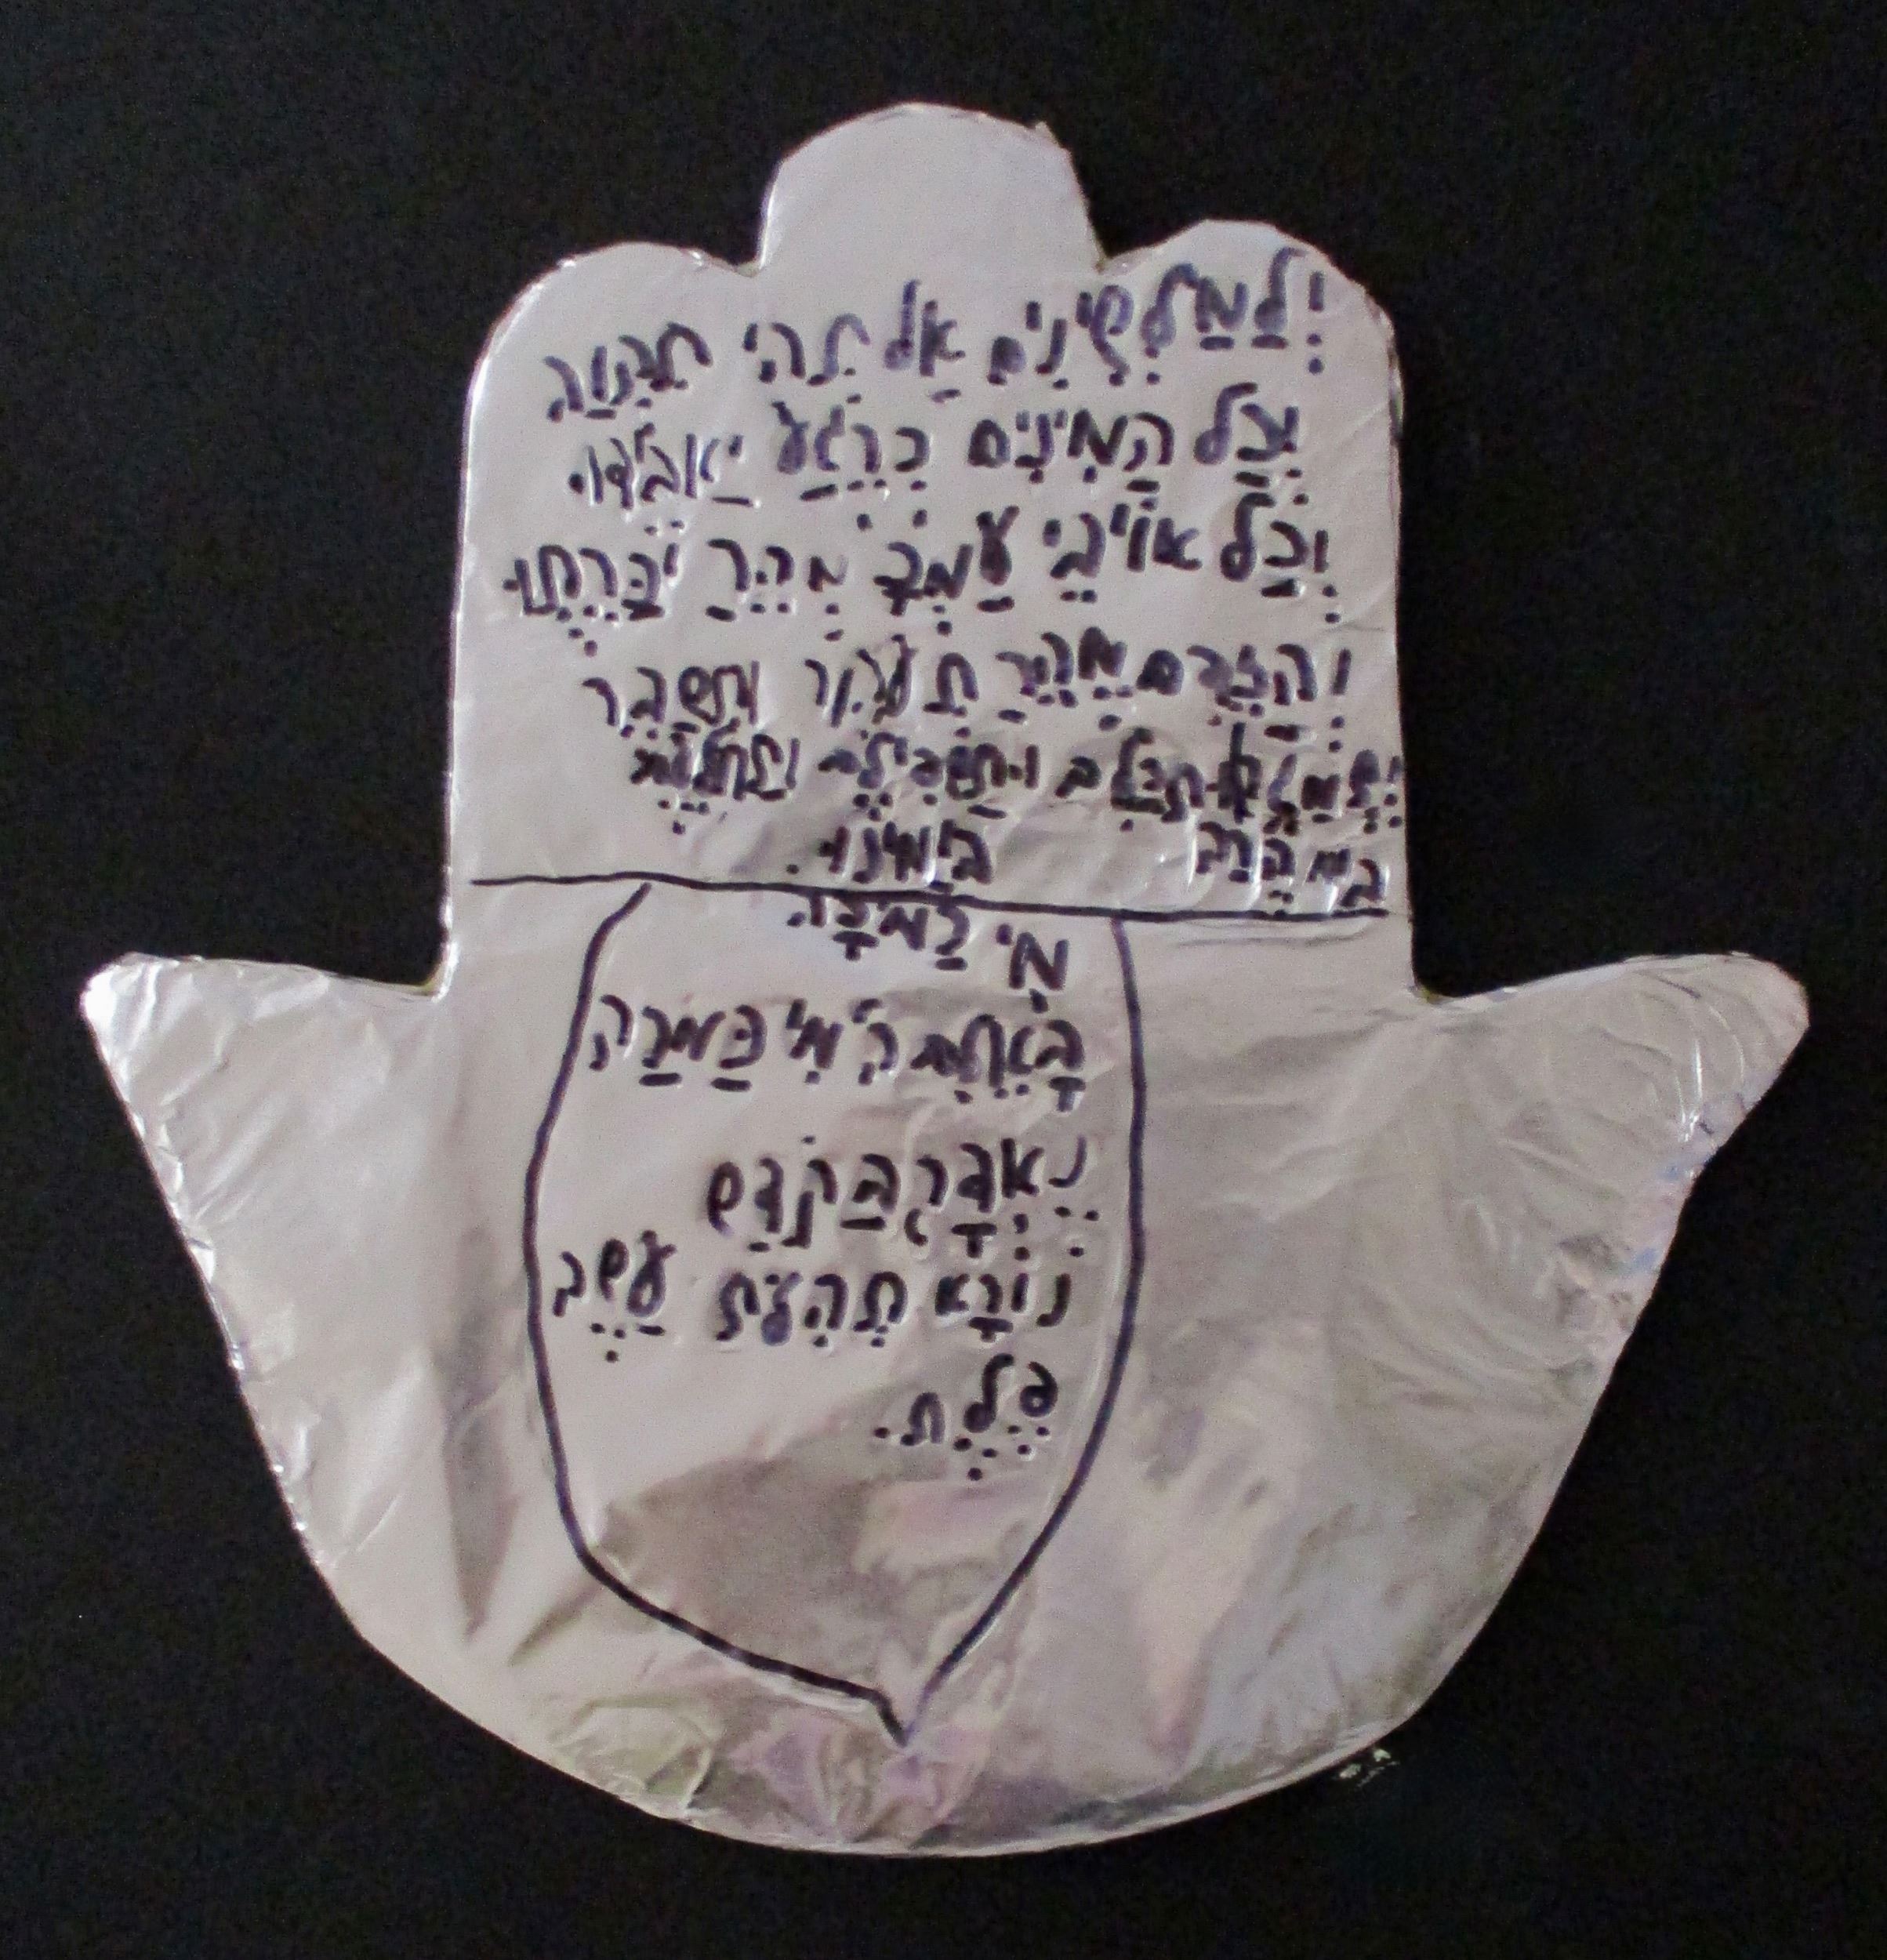 וְלַמַלְשִׁינִים אַל תְּהִי תִקְוָה
וְכָל הַמִינִים כְּרֶגַע יֹאבֵדוּ
וְכָל אוֹיְבֵי עַמְךָ מְהֵרָ יִכָּרֵתוּ
וְהַזֵדִם מְהֵרָ תְעַקֵר וּתְשַׁבֵּר
וּתְמַגֵר וּתְכַלֵם וְתַשְׁפִּילֵם
בִּמְהֵרָה בְיָמֵינוּ.
מִי כַמֹכָה
בָּאֵלִם ה' מִי כַּמֹכָה
נֶאְדָּר בַּקֹדֶשׁ
נוֹרָא תְהִלֹת עֹשֵׂה
פֶלֶ